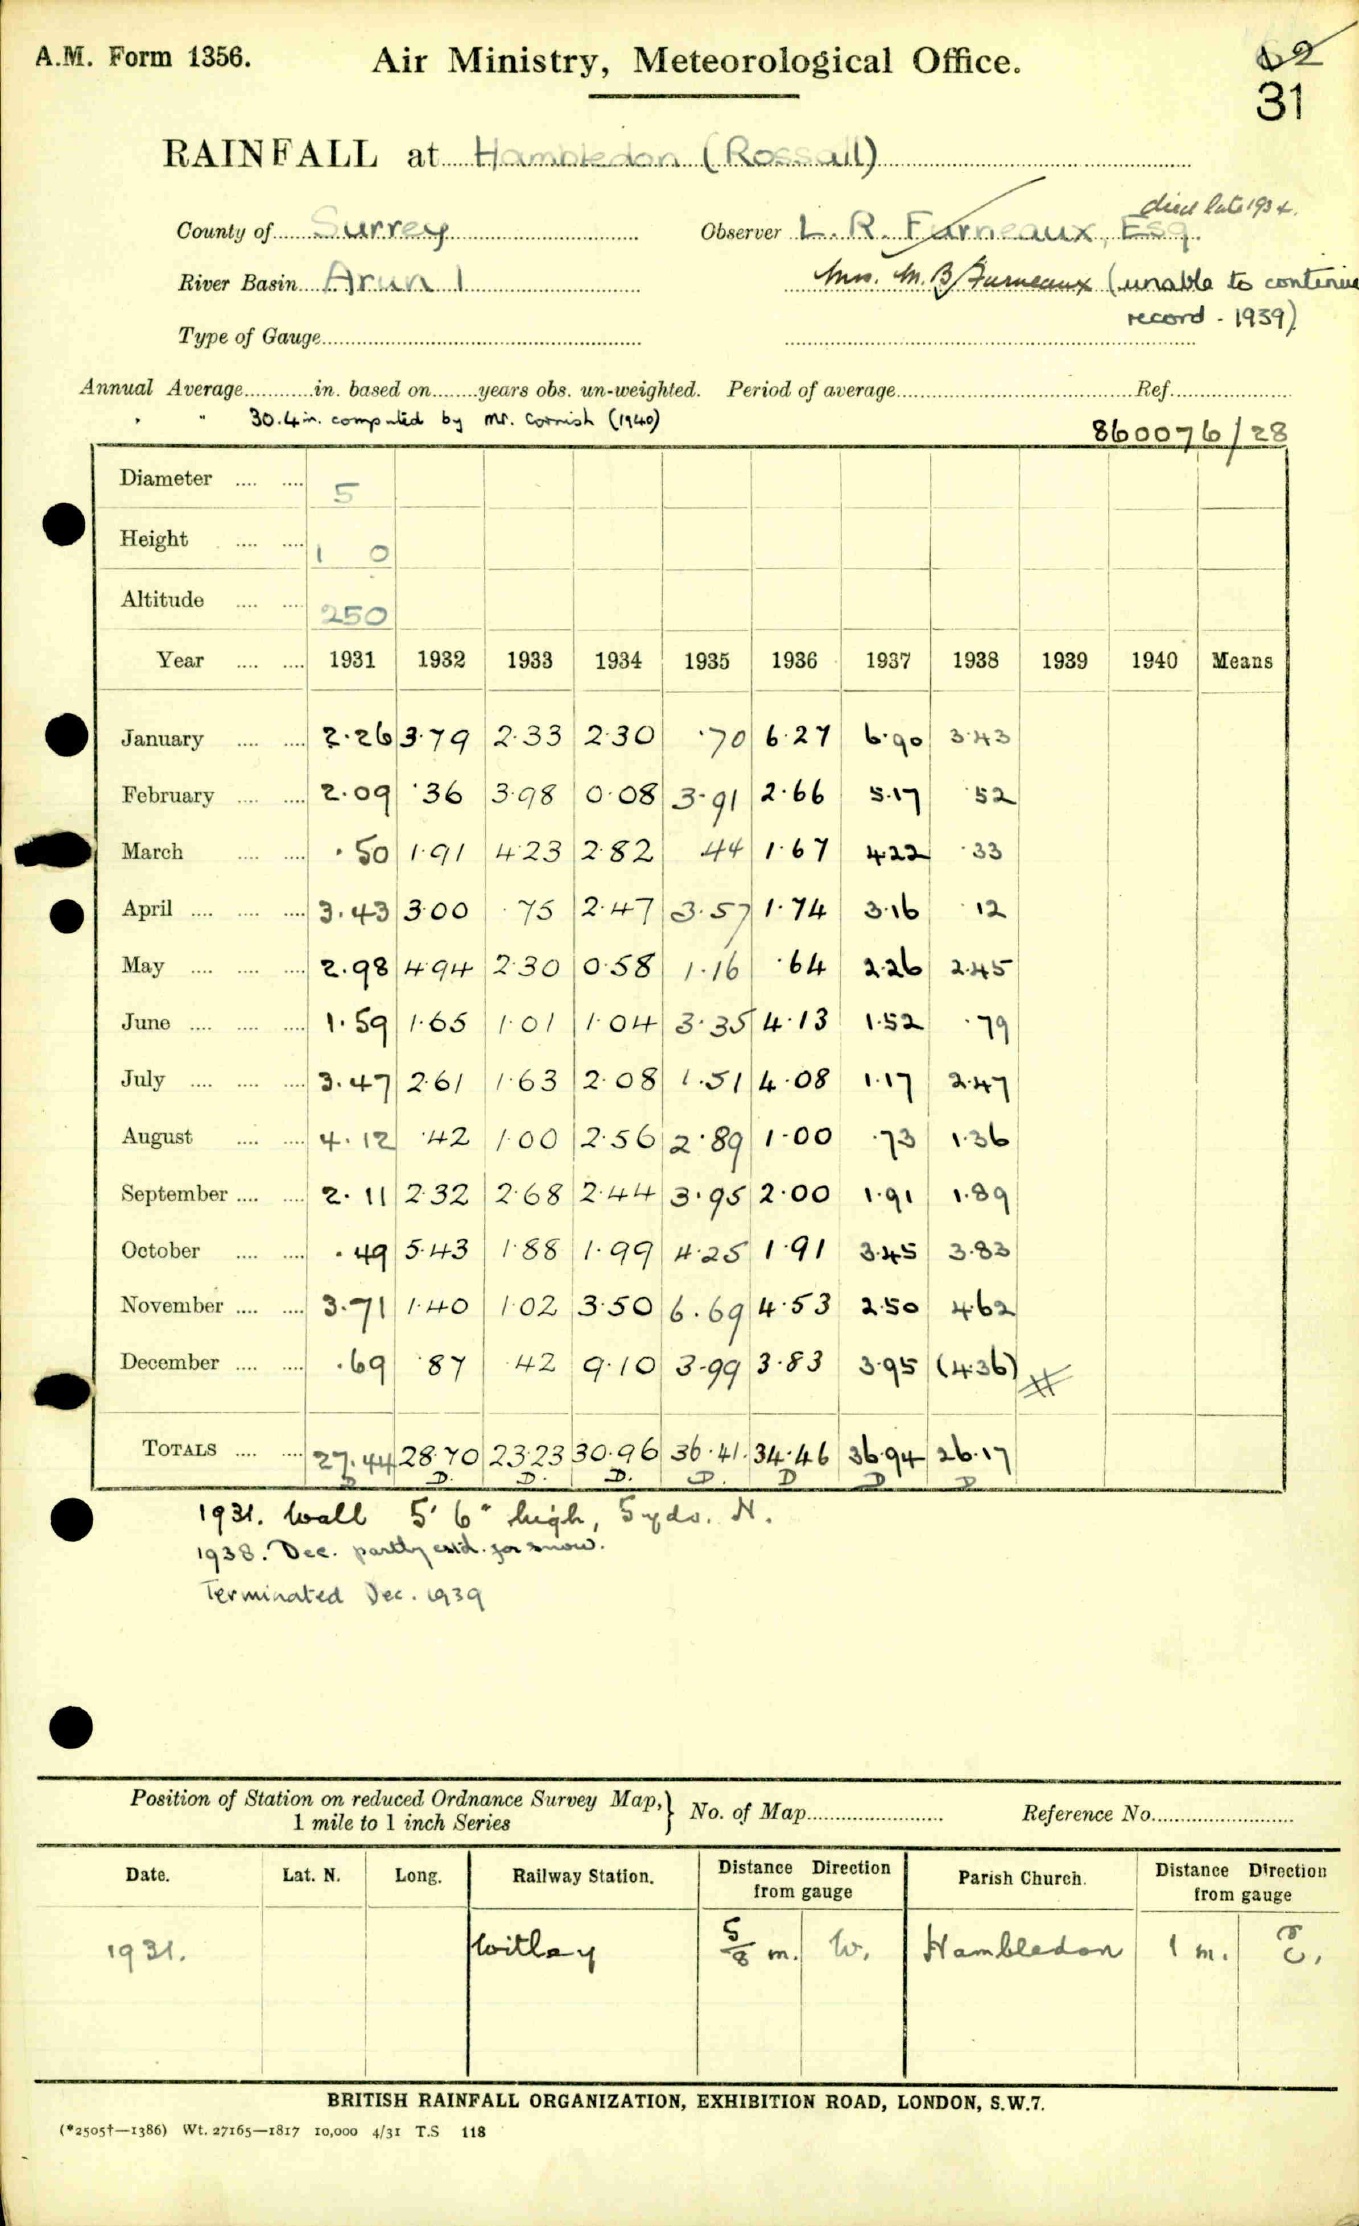 A.M. Form 1356. Air Ministry, Meteorological Office. 62
31
RAINFALL at Hambledon (Rossall)
died late 1934.
County of Surrey Observer L. R. Furneaux, Esq.
River Basin Arun 1 Mrs. M. B. Furneaux (unable to continue
record - 1939)
Type of Gauge
Annual Average in. based on years obs. un-weighted. Period of average Ref.
" " 30.4 in. computed by Mr. Cornish (1940)
860076/28
Diameter 5
Height 1 0
Altitude 250
Year 1931 1932 1933 1934 1935 1936 1937 1938 1939 1940 Means
January 2.26 3.79 2.33 2.30 .70 6.27 6.90 3.43
February 2.09 .36 3.98 0.08 3.91 2.66 5.17 .52
March .50 1.91 4.23 2.82 .44 1.67 4.22 .33
April 3.43 3.00 .75 2.47 3.57 1.74 3.16 .12
May 2.98 4.94 2.30 0.58 1.16 .64 2.26 2.45
June 1.59 1.65 1.01 1.04 3.35 4.13 1.52 .79
July 3.47 2.61 1.63 2.08 1.51 4.08 1.17 2.47
August 4.12 .42 1.00 2.56 2.89 1.00 .73 1.36
September 2.11 2.32 2.68 2.44 3.95 2.00 1.91 1.89
October .49 5.43 1.88 1.99 4.25 1.91 3.45 3.83
November 3.71 1.40 1.02 3.50 6.69 4.53 2.50 4.62
December .69 .87 .42 9.10 3.99 3.83 3.95 (4.36)
TOTALS 27.44 28.70 23.23 30.96 36.41. 34.46 36.94 26.17
D D. D. D. D. D D D
1931. Wall 5' 6" high, 5 yds. N.
1938. Dec. partly estd. for snow.
Terminated Dec. 1939
Position of Station on reduced Ordnance Survey Map, } No. of Map Reference No.
1 mile to 1 inch Series
Date. Lat. N. Long. Railway Station. Distance Direction from gauge Parish Church. Distance Direction from gauge
1931. Witley 5/8 m. W. Hambledon 1 m. E.
BRITISH RAINFALL ORGANIZATION, EXHIBITION ROAD, LONDON, S.W.7.
(*2505†—1386) Wt. 27165—1817 10,000 4/31 T.S 118